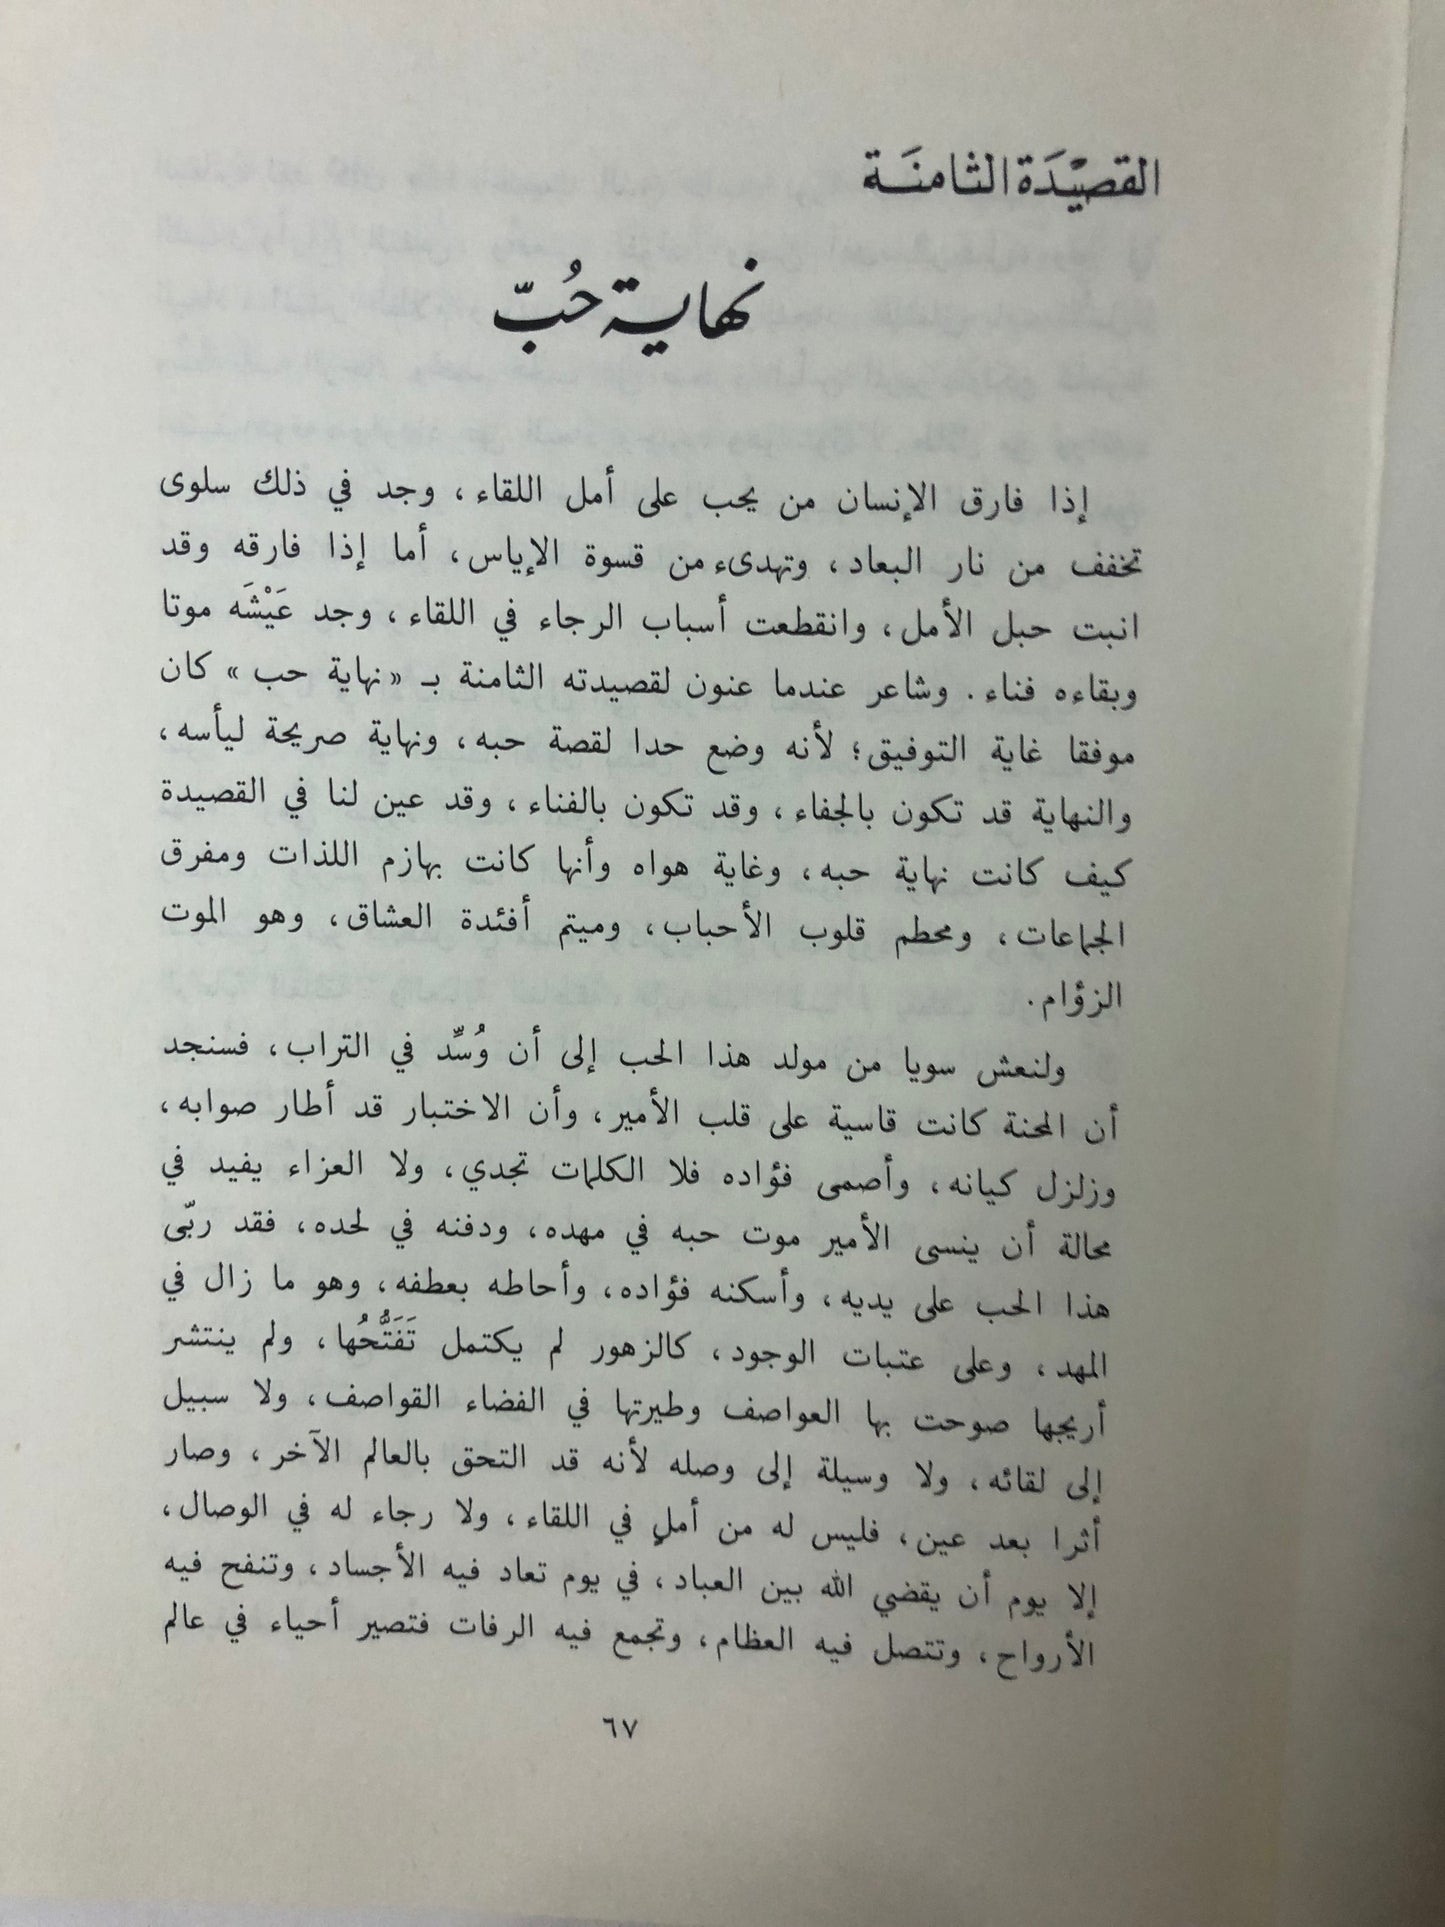 القصيْدَة الثامنَة
نهاية حُبّ
إذا فارق الإنسان من يحب على أمل اللقاء، وجد في ذلك سلوى
تخفف من نار البعاد، وتهدىء من قسوة الإياس، أما إذا فارقه وقد
انبت حبل الأمل، وانقطعت أسباب الرجاء في اللقاء، وجد عَيْشَه موتا
وبقاءه فناء. وشاعر عندما عنون لقصيدته الثامنة بـ «نهاية حب» كان
موفقا غاية التوفيق؛ لأنه وضع حدا لقصة حبه، ونهاية صريحة ليأسه،
والنهاية قد تكون بالجفاء، وقد تكون بالفناء، وقد عين لنا في القصيدة
كيف كانت نهاية حبه، وغاية هواه وأنها كانت بهازم اللذات ومفرق
الجماعات، ومحطم قلوب الأحباب، وميتم أفئدة العشاق، وهو الموت
الزؤام.
ولنعش سويا من مولد هذا الحب إلى أن وُسِّد في التراب، فسنجد
أن المحنة كانت قاسية على قلب الأمير، وأن الاختبار قد أطار صوابه،
وزلزل كيانه، وأصمى فؤاده فلا الكلمات تجدي، ولا العزاء يفيد في
محالة أن ينسى الأمير موت حبه في مهده، ودفنه في لحده، فقد ربّى
هذا الحب على يديه، وأسكنه فؤاده، وأحاطه بعطفه، وهو ما زال في
المهد، وعلى عتبات الوجود، كالزهور لم يكتمل تَفَتُّحُها، ولم ينتشر
أريجها صوحت بها العواصف وطيرتها في الفضاء القواصف، ولا سبيل
إلى لقائه، ولا وسيلة إلى وصله لأنه قد التحق بالعالم الآخر، وصار
أثرا بعد عين، فليس له من أملٍ في اللقاء، ولا رجاء له في الوصال،
إلا يوم أن يقضي الله بين العباد، في يوم تعاد فيه الأجساد، وتنفح فيه
الأرواح، وتتصل فيه العظام، وتجمع فيه الرفات فتصير أحياء في عالم
٦٧